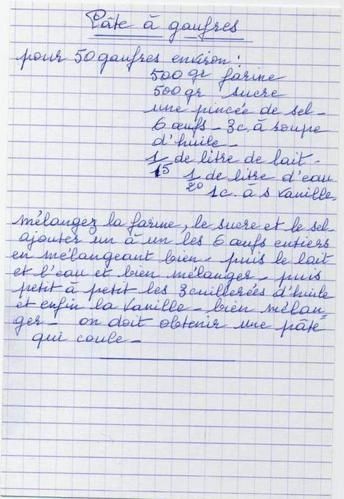 Pâte à gaufres
pour 50 gaufres environ:
500 gr farine
500 gr sucre
une pincée de sel-
6 œufs - 3c. à soupe
d'huile-
1/15 de litre de lait.
1/20 de litre d'eau
1c. à s vanille
mélangez la farine, le sucre et le sel
ajouter un à un les 6 œufs entiers
en mélangeant bien - puis le lait
et l'eau et bien mélanger - puis
petit à petit les 3 cuillerées d'huile
et enfin la vanille - bien mélan-
ger - on doit obtenir une pâte
qui coule-